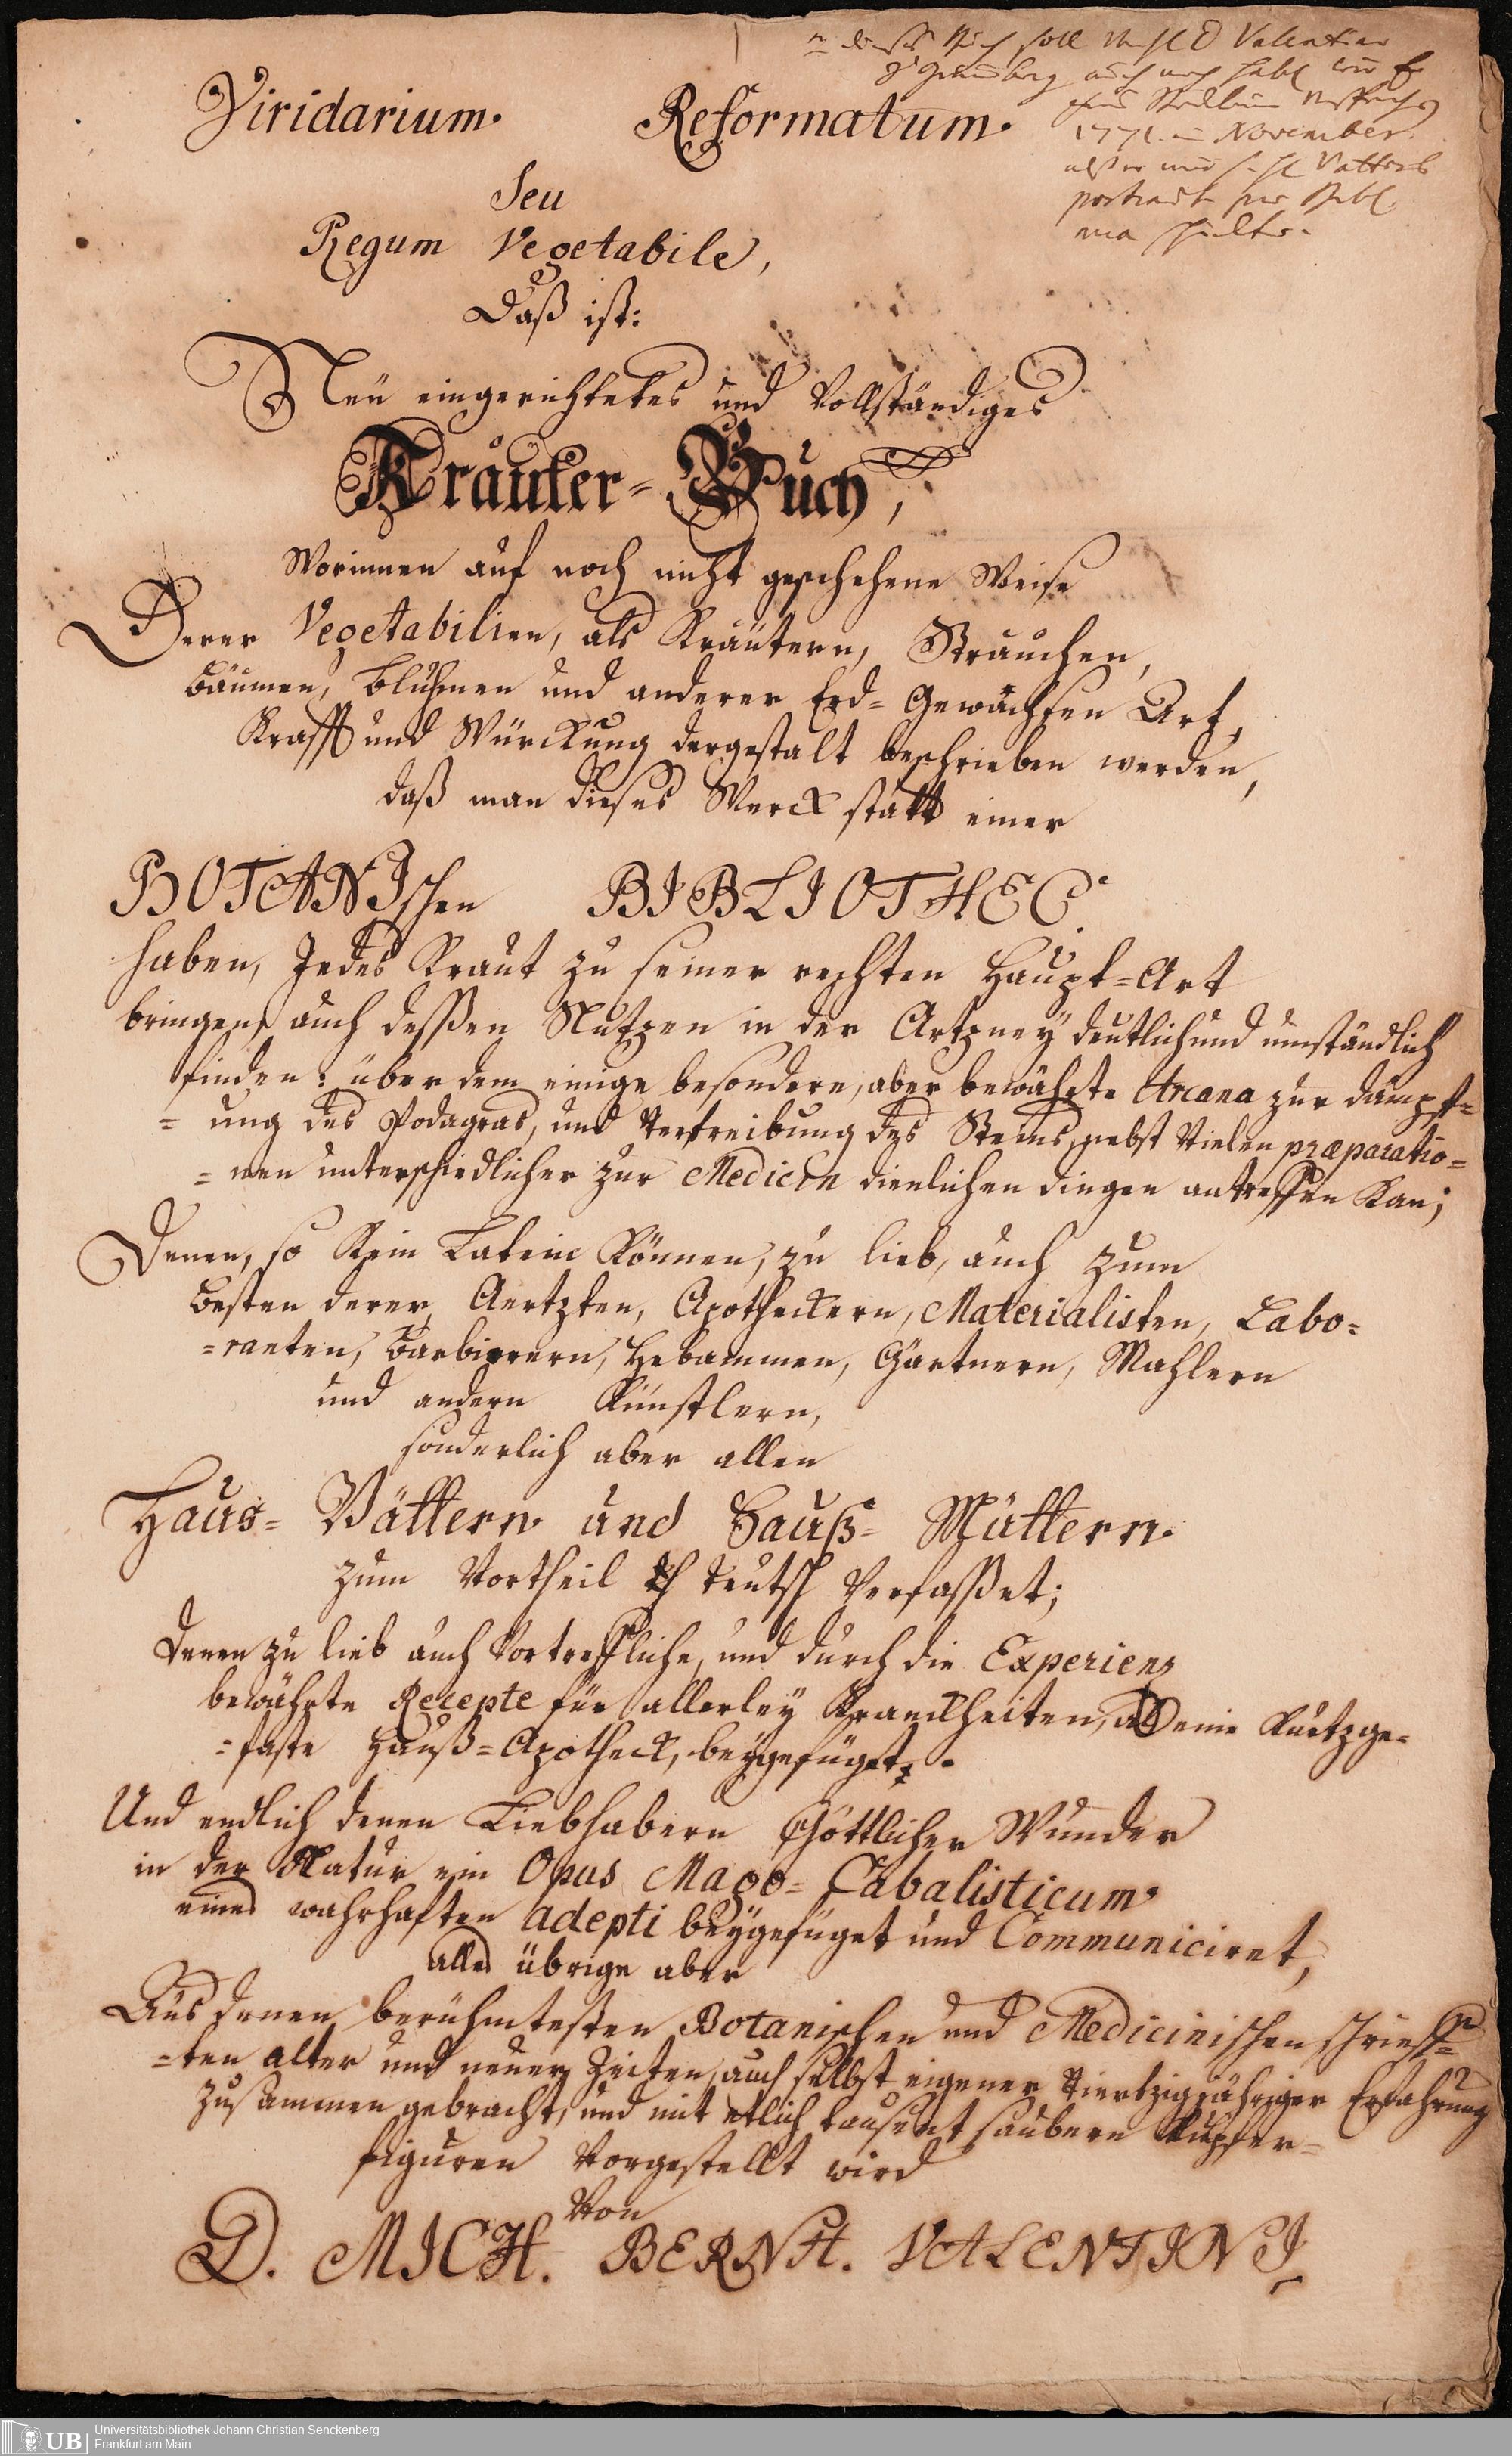 dieses Buch soll H D Valentin
auch noch
1771. in November.
Vatters
portrait
Viridarium. Reformatum.
Seu
Regum Vegetabile,
Daß ist:
Neu eingerichtetes und Vollständiges
Kräuter-Buch,
Worinnen auf noch nicht geschehene Weise
Derer Vegetabilien, als Kräutern, Sträuchen,
Bäumen, Bluhmen und anderer Erd-Gewächsen Art,
Krafft und Würckung dergestalt beschrieben werden,
daß man dieses Werck statt einer
BOTANIschen BIBLIOTHEC
haben, Jedes Kraut zu seiner rechten Haupt-Art
bringen, auch deßen Nutzen in der Artzney deutlich und umständlich
finden: über dem einige besondere, aber bewährte Arcana zur dämpf-
-ung des Podagras, und Vertreibung des Steins, nebst Vielen præparatio-
-nen unterschiedlicher zur Medicin dienlichen dingen antreffen kan;
Denen, so kein Latein können, zu lieb, auch zum
besten derer Aertzten, Apotheckern, Materialisten, Labo-
-ranten, Barbierern, Hebammen, Gärtnern, Mahlern
und andern Künstlern,
sonderlich aber allen
Haus- Vättern und Hauß- Müttern
zum Vortheil Teutsch Verfaßet;
Denen zu lieb auch Vortreffliche, und durch die Experienz
bewährte Recepte für allerley Kranckheiten, als eine kurtzge-
-faste Hauß-Apotheck, beygefüget.
Und endlich denen Liebhabern Göttlicher Wunder
in der Natur ein Opus Mago-Cabalisticum
eines wahrhaften Adepti beygefüget und Communiciret,
alles übrige aber
Aus denen berühmtesten Botanischen und Medicinischen schrieff-
-ten alter und neuer Zeiten, auch selbst eigener Viertzigjähriger Erfahrung
zusammen gebracht, und mit etlich tausent saubern Kupfer-
figuren Vorgestellt wird
Von
D. MICH. BERNH. VALENTINI
UB
Universitätsbibliothek Johann Christian Senckenberg
Frankfurt am Main